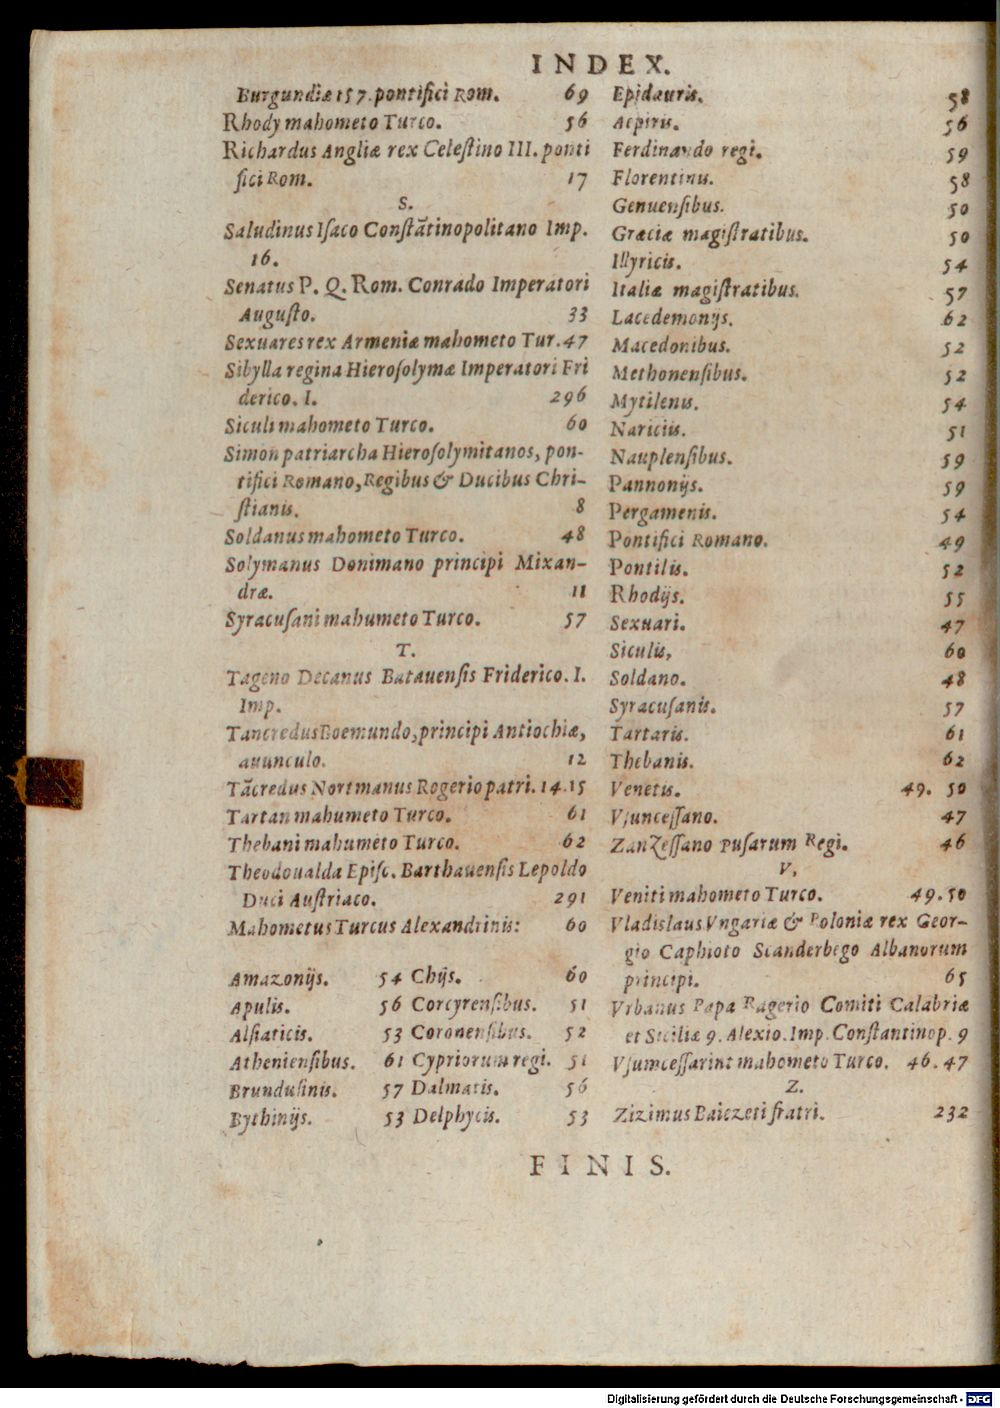 INDEX.
Burgundiæ 157. pontifici Rom. 69
Rhody mahometo Turco. 56
Richardus Angliæ rex Celeſtino III. ponti
fici Rom. 17
S.
Saludinus Iſaco Conſtãtinopolitano Imp.
16.
Senatus P. Q. Rom. Conrado Imperatori
Auguſto. 33
Sexuares rex Armeniæ mahometo Tur. 47
Sibylla regina Hieroſolymæ Imperatori Fri
derico. I. 296
Siculi mahometo Turco. 60
Simon patriarcha Hieroſolymitanos, pon-
tifici Romano, Regibus & Ducibus Chri-
ſtianis. 8
Soldanus mahometo Turco. 48
Solymanus Donimano principi Mixan-
dræ. 11
Syracuſani mahumeto Turco. 57
T.
Tageno Decanus Batauenſis Friderico. I.
Imp.
Tancredus Boemundo, principi Antiochiæ,
auunculo. 12
Tãcredus Nortmanus Rogerio patri. 14.15
Tartari mahumeto Turco. 61
Thebani mahumeto Turco. 62
Theodoualda Epiſc. Barthauenſis Lepoldo
Duci Auſtriaco. 291
Mahometus Turcus Alexandrinis: 60
Amazonijs. 54 Chijs. 60
Apulis. 56 Corcyrenſibus. 51
Alſiaticis. 53 Coronenſibus. 52
Athenienſibus. 61 Cypriorum regi. 51
Bruduſinis. 57 Dalmatis. 56
Bythinijs. 53 Delphycis. 53
Epidauris. 58
Aepiris. 56
Ferdinando regi. 59
Florentinis. 58
Genuenſibus. 50
Græciæ magiſtratibus. 50
Illyricis. 54
Italiæ magiſtratibus. 57
Lacedemonijs. 62
Macedonibus. 52
Methonenſibus. 52
Mytilenis. 54
Nariciis. 51
Nauplenſibus. 59
Pannonijs. 59
Pergamenis. 54
Pontifici Romano. 49
Pontilis. 52
Rhodijs. 55
Sexuari. 47
Siculis, 60
Soldano. 48
Syracuſanis. 57
Tartaris. 61
Thebanis. 62
Venetis. 49. 50
Vſunceſſano. 47
Zanzeſſano Puſarum Regi. 46
V,
Veniti mahometo Turco. 49.50
Vladislaus Vngariæ & Poloniæ rex Geor-
gio Caphioto Scanderbego Albanorum
principi. 65
Vrbanus Papa Ragerio Comiti Calabriæ
et Siciliæ 9. Alexio. Imp. Conſtantinop. 9
Vſumceſſarint mahometo Turco. 46.47
Z.
Zizimus Baiczeti fratri. 232
FINIS.
Digitalisierung gefördert durch die Deutsche Forschungsgemeinschaft - DFG